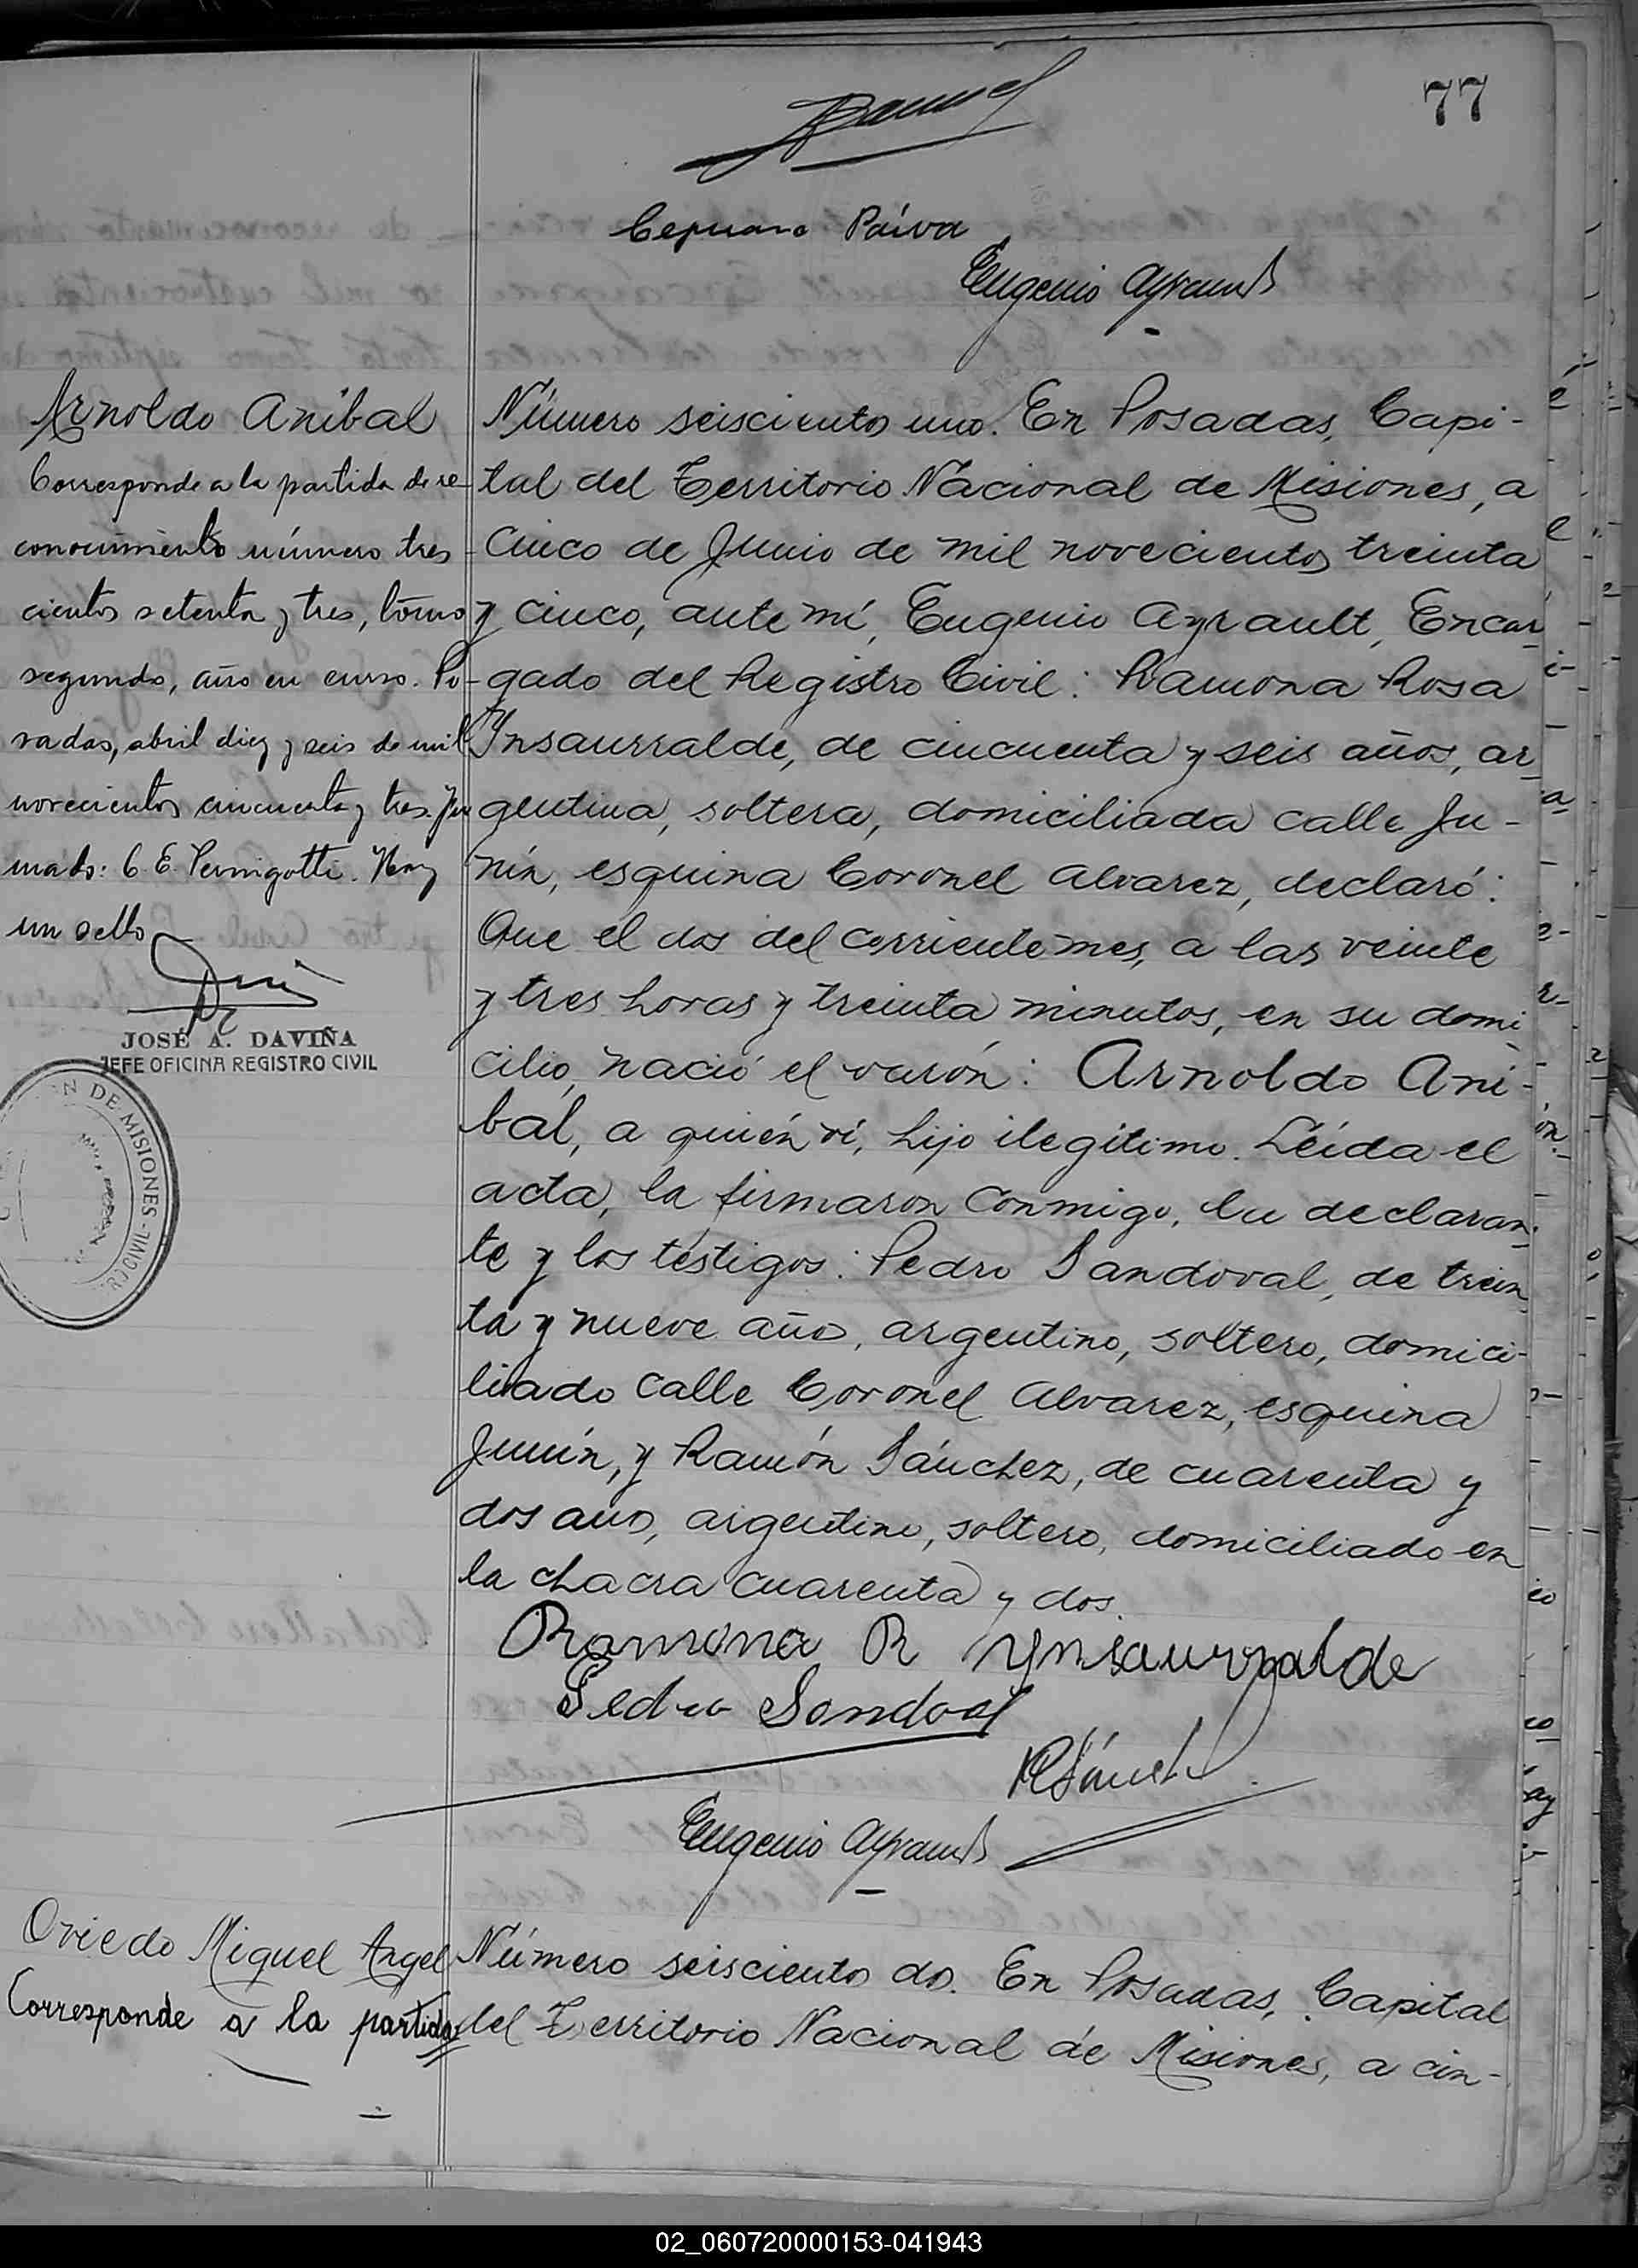 77
Paiva
Eugenio Ayrault
Arnoldo Anibal
Corresponde a la partida de re-
conocimiento número tres-
cientos setenta y tres, tomo
segundo, año en curso. Po-
sadas, abril diez y seis de mil
novecientos cincuenta y tres. Fir
mado: C. E. Pernigotti. Hay
un sello
JOSÉ A. DAVIÑA
JEFE OFICINA REGISTRO CIVIL
N DE MISIONES -
RO CIVIL -
Número seiscientos uno. En Posadas, Capi-
tal del Territorio Nacional de Misiones, a
cinco de Junio de mil novecientos treinta
y cinco, ante mí, Eugenio Ayrault, Encar
gado del Registro Civil: Ramona Rosa
Ynsaurralde, de cincuenta y seis años, ar
gentina, soltera, domiciliada calle Ju-
nín, esquina Coronel Alvarez, declaró:
Que el dos del corriente mes, a las veinte
y tres horas y treinta minutos, en su domi
cilio, nació el varón: Arnoldo Ani-
bal, a quién ví, hijo ilegítimo. Leída el
acta, la firmaron conmigo, la declaran-
te y los testigos: Pedro Sandoval, de trein
ta y nueve años, argentino, soltero, domici-
liado calle Coronel Alvarez, esquina
Junín, y Ramón Sánchez, de cuarenta y
dos años, argentino, soltero, domiciliado en
la chacra cuarenta y dos.
Ramona R Ynsaurralde
Pedro Sandoval
R Sánchez
Eugenio Ayrault
Oviedo Miguel Angel
Corresponde a la partida
Número seiscientos dos. En Posadas, Capital
del Territorio Nacional de Misiones, a cin-
02_060720000153-041943